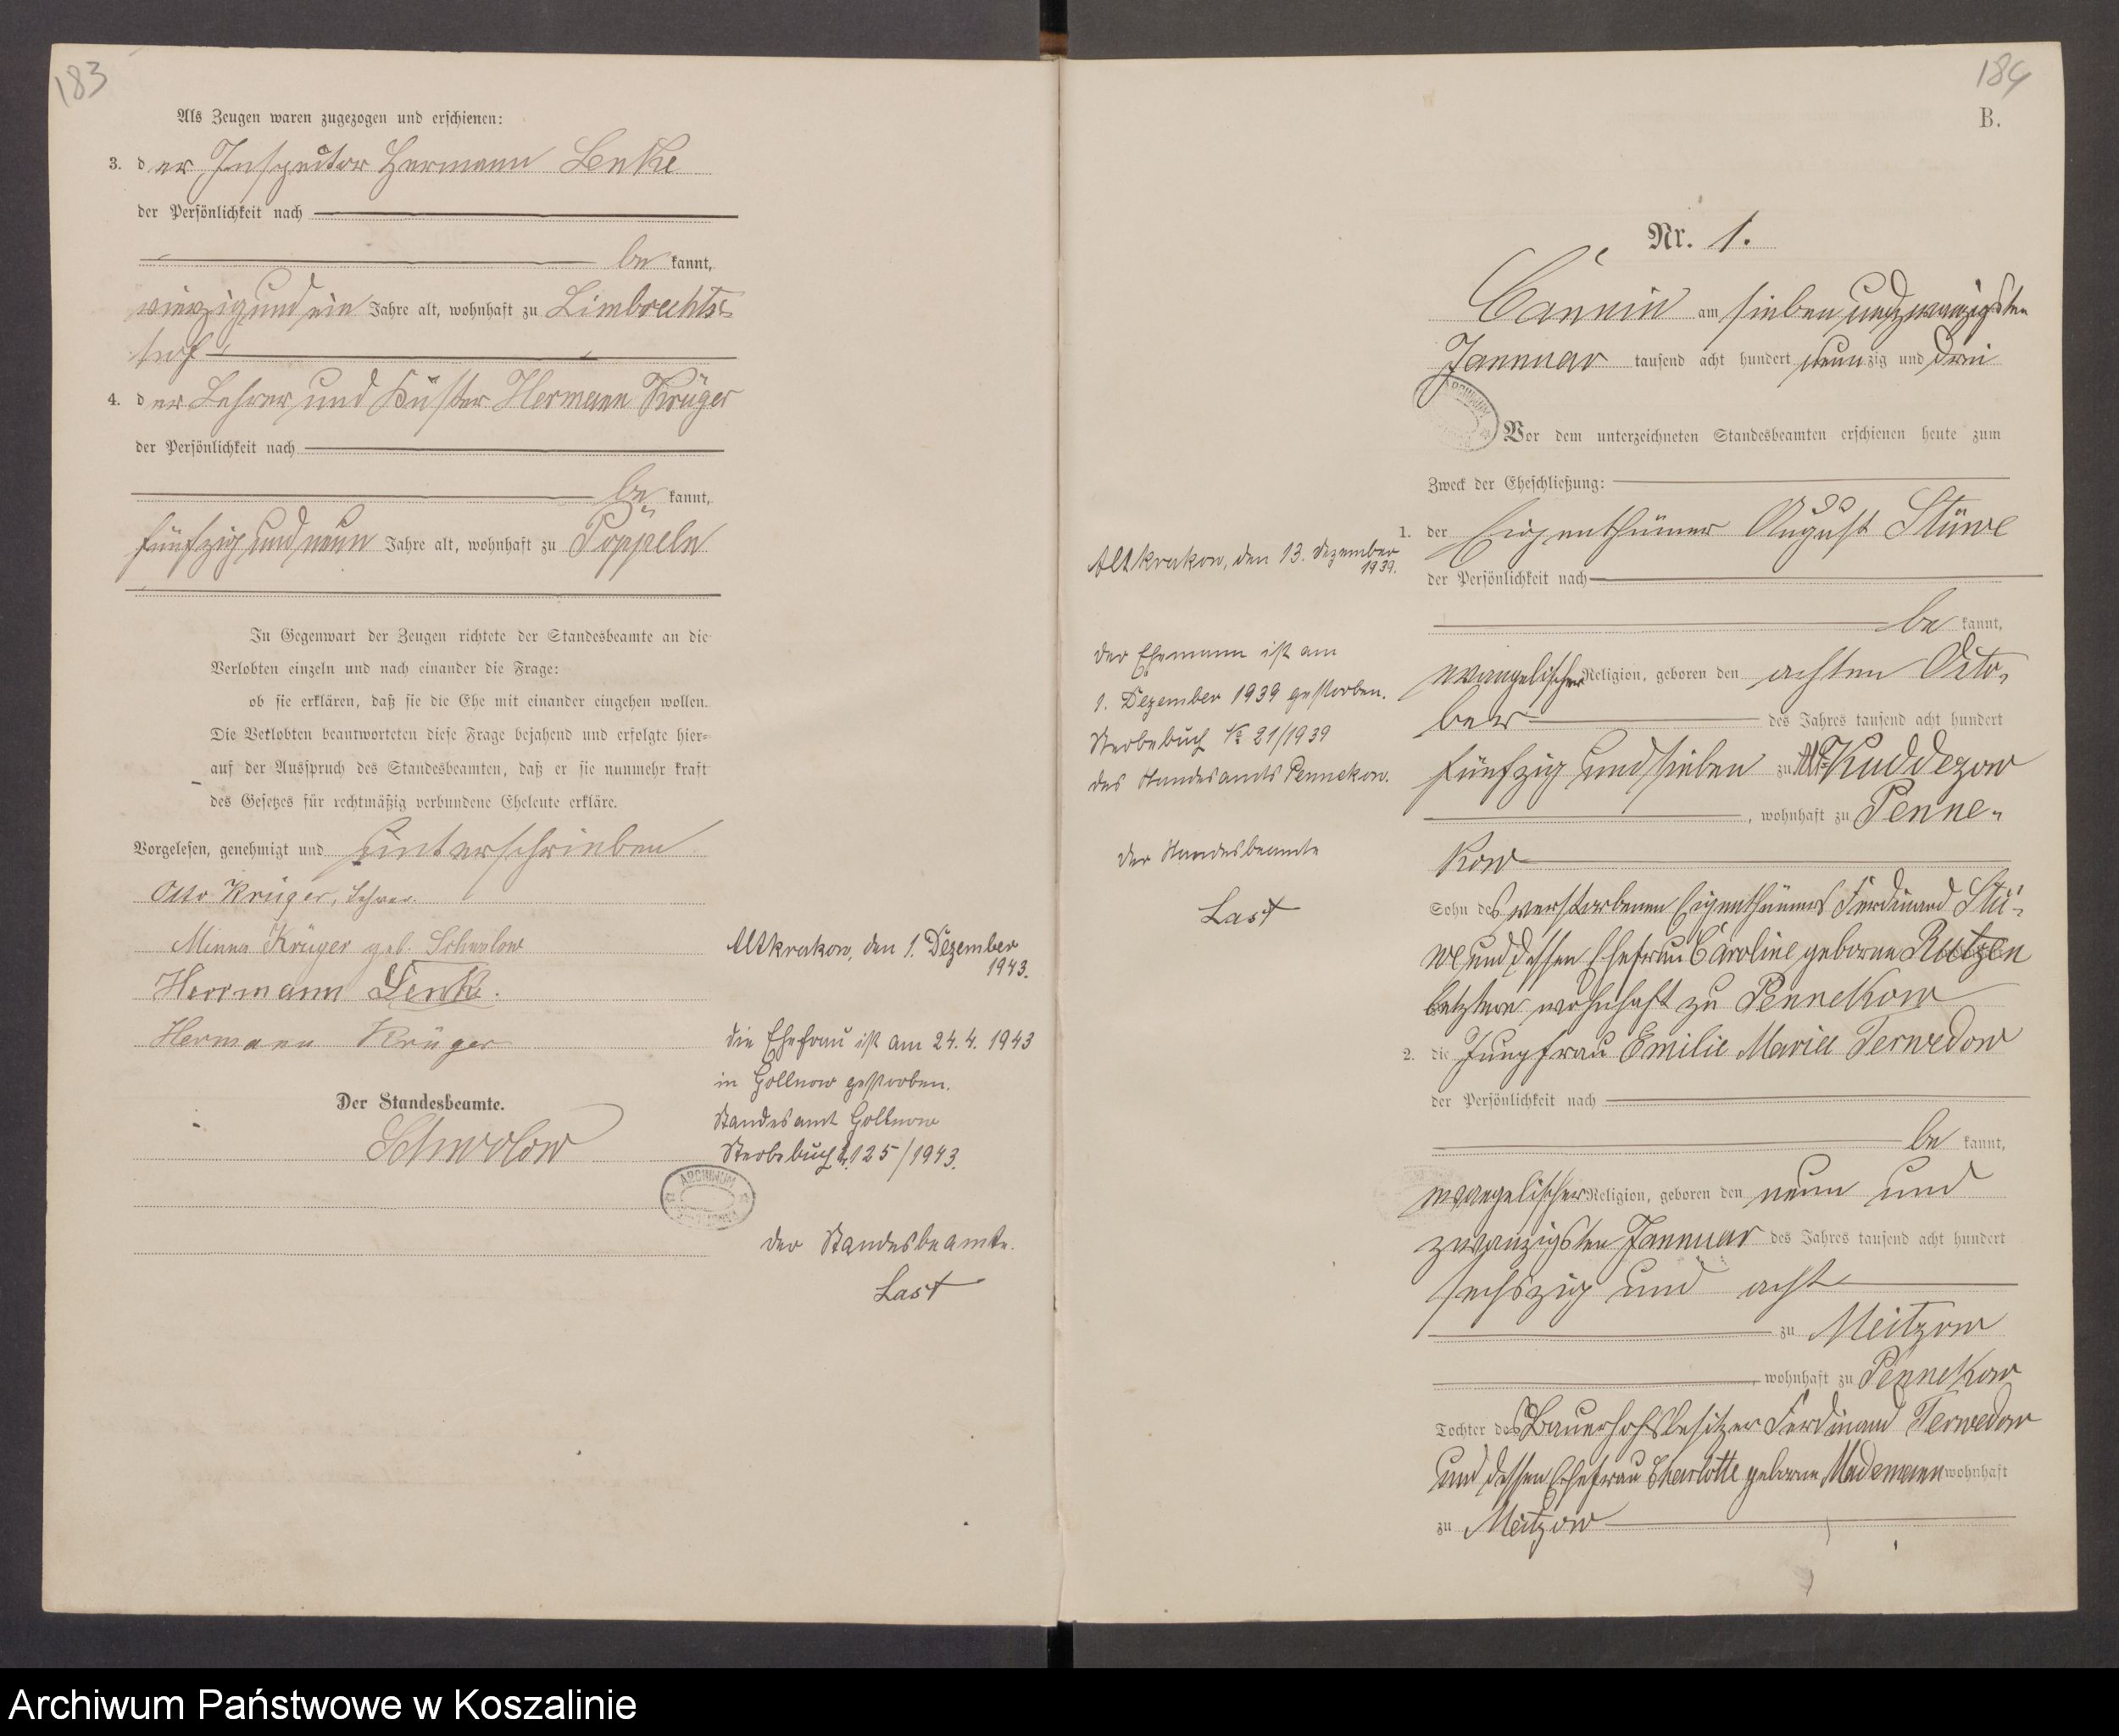 183
Als Zeugen waren zugezogen und erschienen:
3. der Inspector Hermann Lenke
der Persönlichkeit nach
be kannt,
vierzig und ein Jahre alt, wohnhaft zu Limbrechts-
hof
4. der Lehrer und Küster Hermann Krüger
der Persönlichkeit nach
be kannt,
fünfzig und neun Jahre alt, wohnhaft zu Pöppeln
In Gegenwart der Zeugen richtete der Standesbeamte an die
Verlobten einzeln und nach einander die Frage:
ob sie erklären, daß sie die Ehe mit einander eingehen wollen.
Die Verlobten beantworteten diese Frage bejahend und erfolgte hier-
auf der Ausspruch des Standesbeamten, daß er sie nunmehr kraft
des Gesetzes für rechtmäßig verbundene Eheleute erkläre.
Vorgelesen, genehmigt und unterschrieben
Otto Krüger, Lehrer.
Minna Krüger geb. Schwolow
Herrmann Lenke.
Hermann Krüger
Der Standesbeamte.
Schwolow
Altkrakow, den 1. Dezember
1943.
Die Ehefrau ist am 24.4.1943
in Gollnow gestorben.
Standesamt Gollnow
Sterbebuch Nr. 125/1943.
ARCHIWUM
Der Standesbeamte.
Last
184
B.
Nr. 1.
Cannin am sieben und zwanzigsten
Januuar tausend acht hundert neunzig und drei
ARCHIWUM
Vor dem unterzeichneten Standesbeamten erschienen heute zum
Zweck der Eheschließung:
1. der Eigenthümer August Stüwe
der Persönlichkeit nach
be kannt,
evangelischer Religion, geboren den achten Octo-
ber des Jahres tausend acht hundert
fünfzig und sieben zu Alt-Kuddezow
, wohnhaft zu Penne-
kow
Sohn des verstorbenen Eigenthümers Ferdinand Stü-
we und dessen Ehefrau Caroline geborne Rutzen
letztere wohnhaft zu Pennekow
2. die Jungfrau Emilie Marie Terwedow
der Persönlichkeit nach
be kannt,
evangelischer Religion, geboren den neun und
zwanzigsten Januuar des Jahres tausend acht hundert
sechszig und acht
zu Meitzow
, wohnhaft zu Pennekow
Tochter des Bauerhofsbesitzer Ferdinand Terwedow
und dessen Ehefrau Charlotte geborne Mademann wohnhaft
zu Meitzow
Altkrakow, den 13. Dezember
1939.
Der Ehemann ist am
1. Dezember 1939 gestorben.
Sterbebuch Nr 21/1939
des Standesamts Pennekow.
Der Standesbeamte
Last
Archiwum Państwowe w Koszalinie